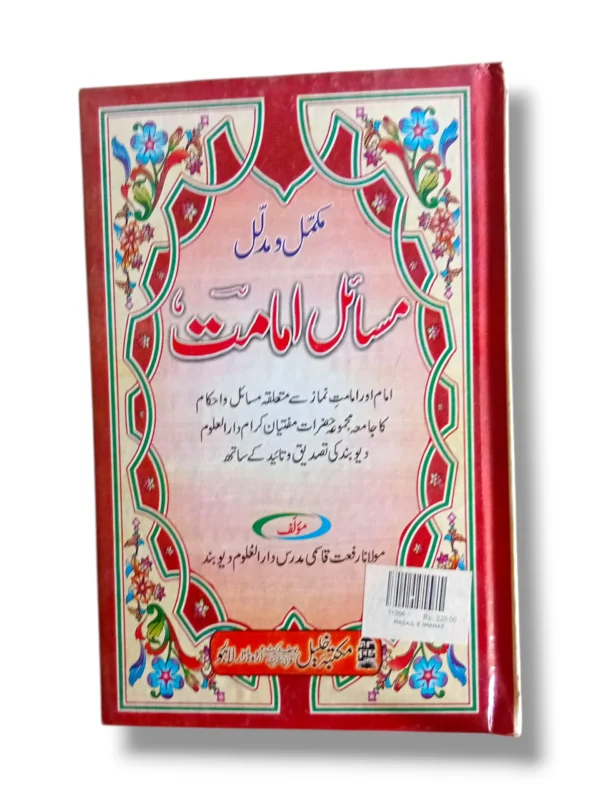 مکمّل و مدلّل
مسائل امامت
امام اور امامتِ نماز سے متعلقہ مسائل و احکام
کا جامعہ مجموعہ حضرات مفتیان کرام دارالعلوم
دیوبند کی تصدیق و تائید کے ساتھ
مؤلف
مولانا رفعت قاسمی مدرس دارالعلوم دیوبند
11306
Rs. 220.00
MASAIL E IMAMAT
مکتبہ خلیل
اردو بازار لاہور